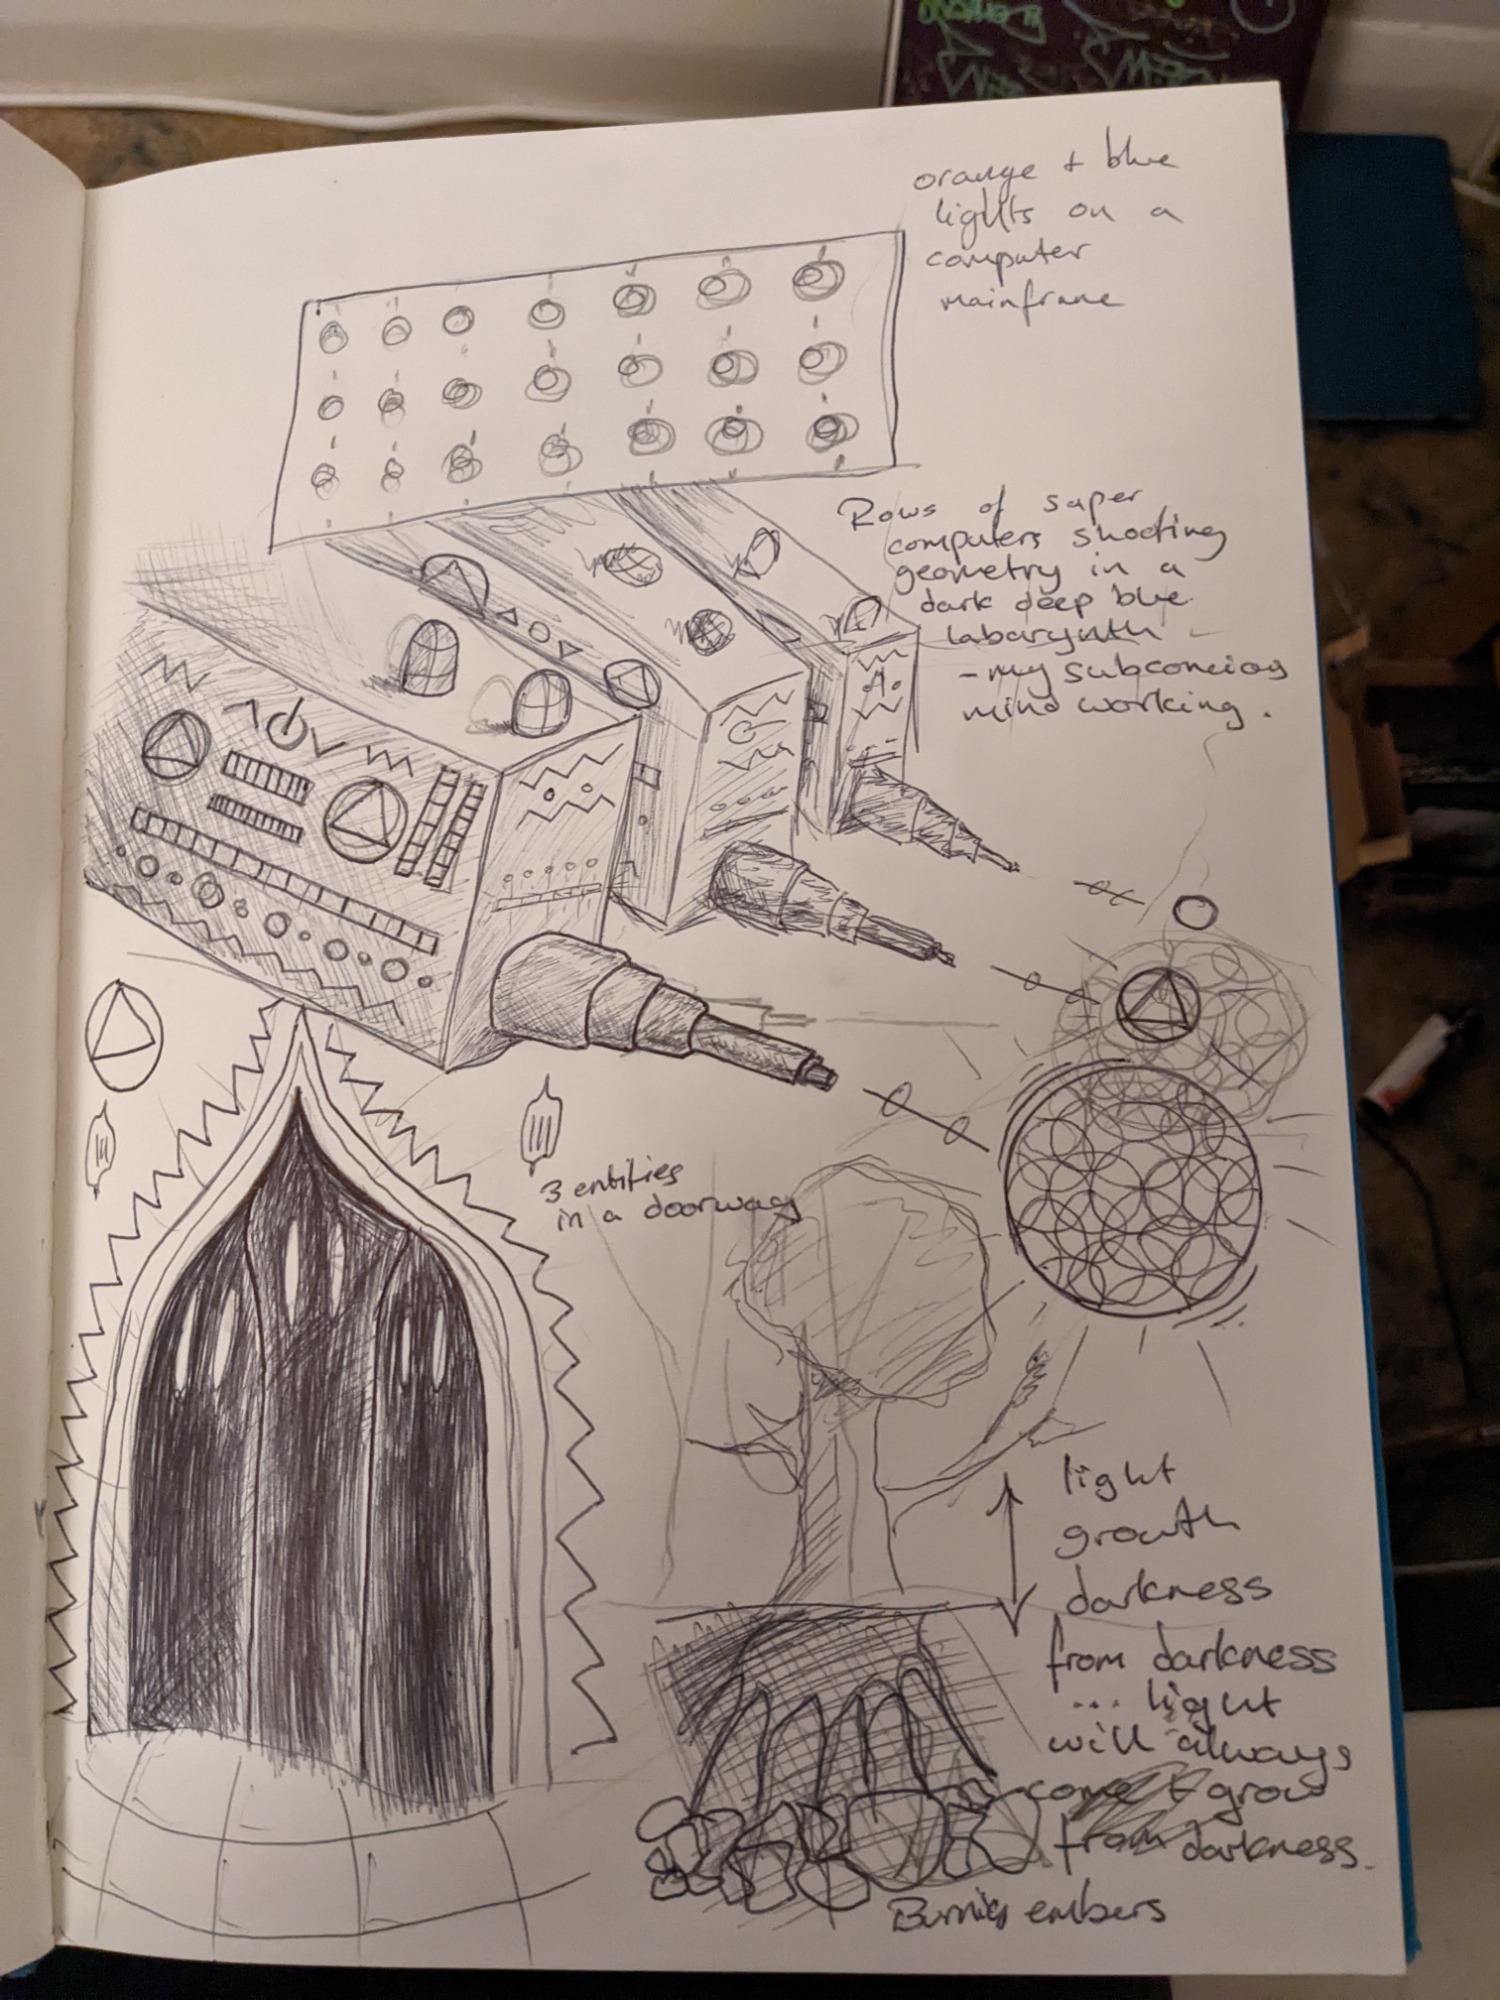 orange + blue
lights on a
computer
mainframe
Rows of super
computers shooting
geometry in a
dark deep blue
labarynth
- my subconcious
mind working.
3 entities
in a doorway
light
growth
darkness
from darkness
... light
will always
come + grow
from darkness.
Burning embers